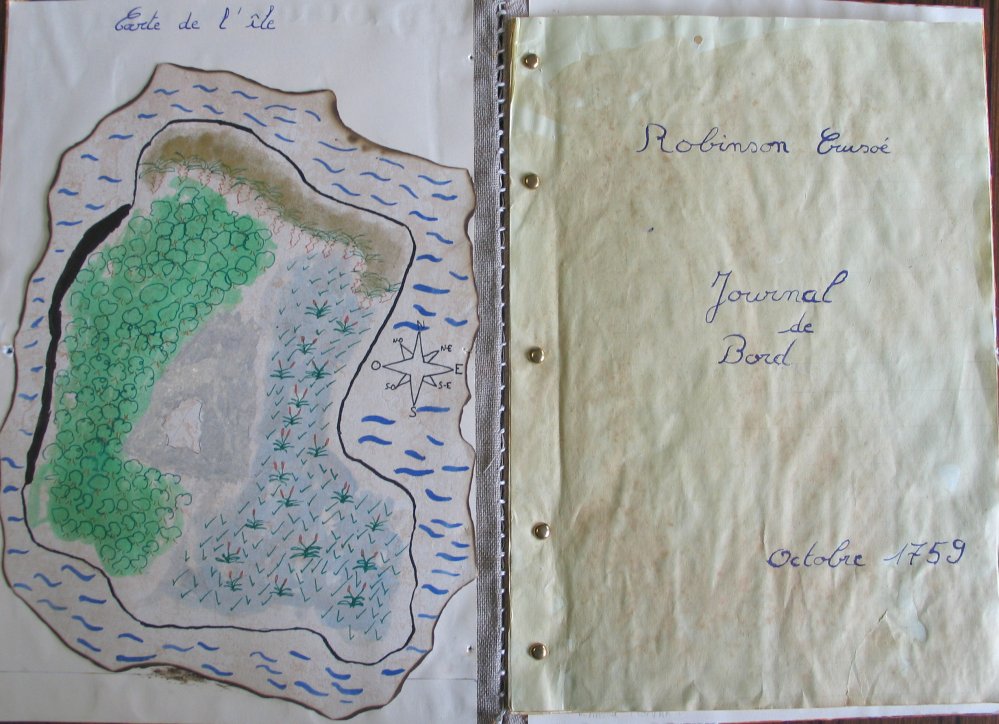 Carte de l'île
N
N-O
N-E
O
E
S-O
S-E
S
Robinson Crusoé
Journal
de
Bord
Octobre 1759